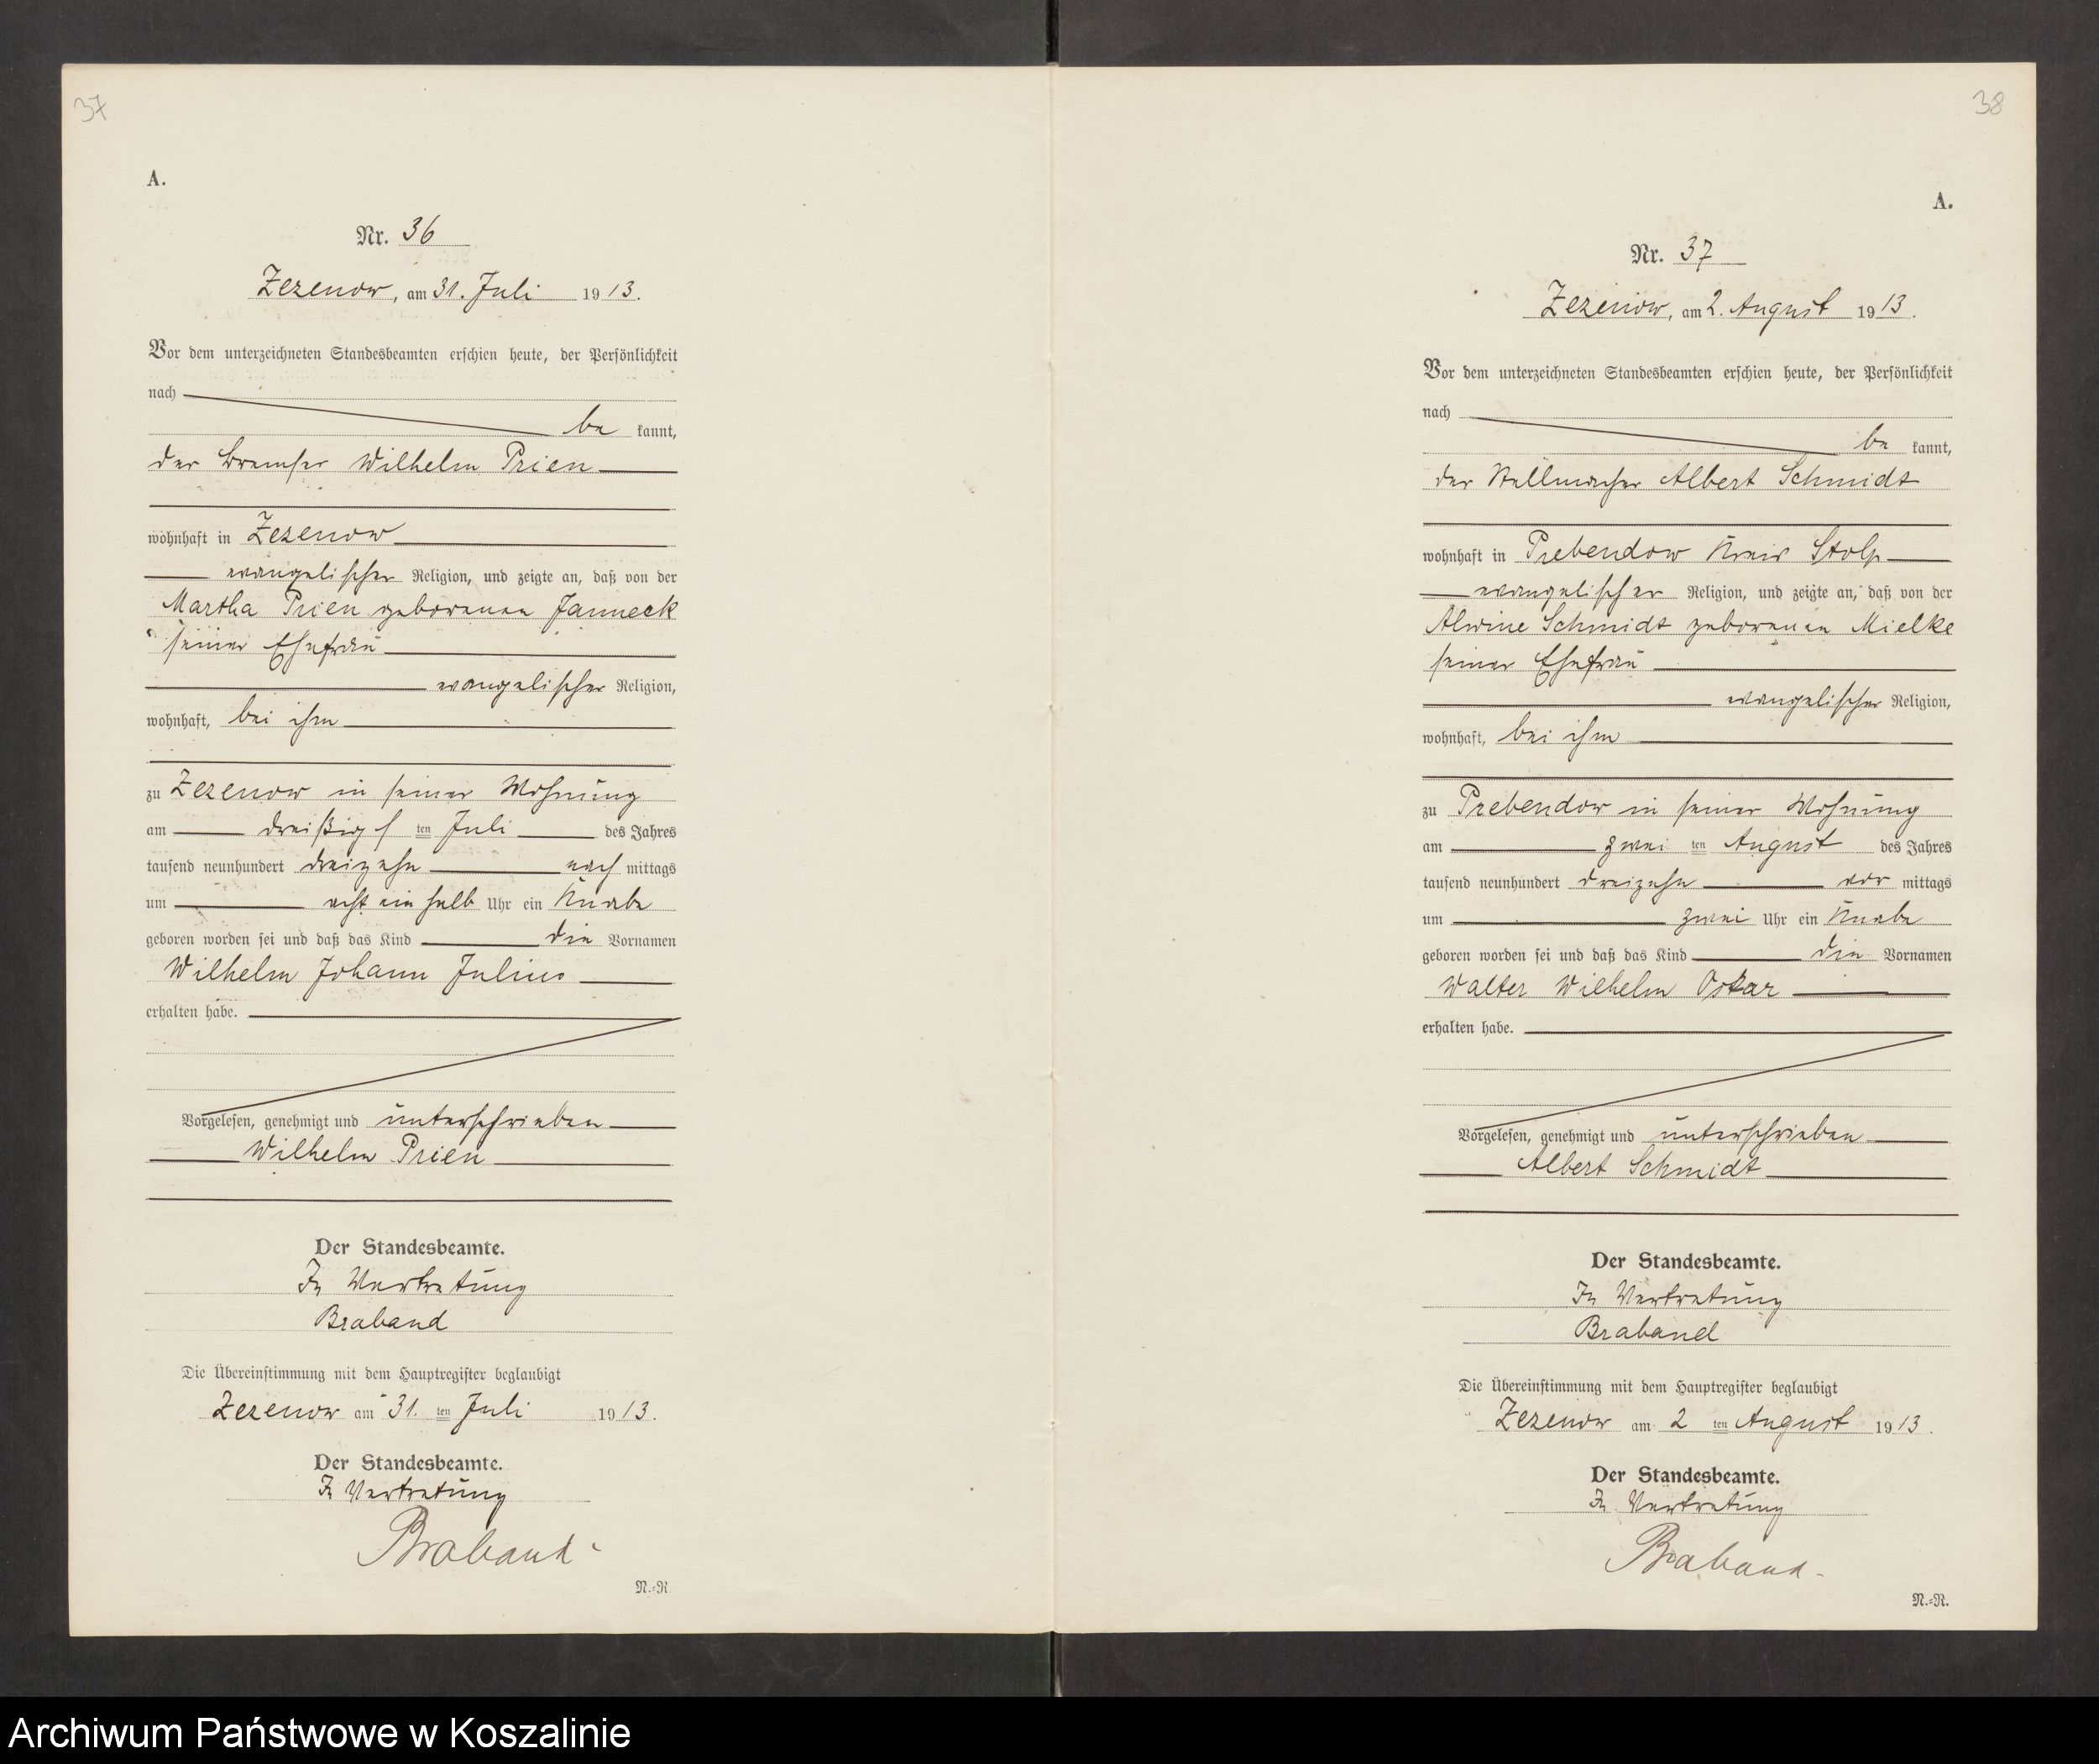 37
A.
Nr. 36
Zezenow, am 31. Juli 1913.
Vor dem unterzeichneten Standesbeamten erschien heute, der Persönlichkeit
nach
be kannt,
der Bremser Wilhelm Prien
wohnhaft in Zezenow
evangelischer Religion, und zeigte an, daß von der
Martha Prien geborenen Janneck
seiner Ehefrau
evangelischer Religion,
wohnhaft, bei ihm
zu Zezenow in seiner Wohnung
am dreißigs ten Juli des Jahres
tausend neunhundert dreizehn nach mittags
um acht ein halb Uhr ein Knabe
geboren worden sei und daß das Kind die Vornamen
Wilhelm Johann Julius
erhalten habe.
Vorgelesen, genehmigt und unterschrieben
Wilhelm Prien
Der Standesbeamte.
In Vertretung
Braband
Die Übereinstimmung mit dem Hauptregister beglaubigt
Zezenow am 31. ten Juli 1913.
Der Standesbeamte.
In Vertretung
Braband
N.=R
38
A.
Nr. 37
Zezenow, am 2. August 1913.
Vor dem unterzeichneten Standesbeamten erschien heute, der Persönlichkeit
nach
be kannt,
der Stellmacher Albert Schmidt
wohnhaft in Prebendow Kreis Stolp
evangelischer Religion, und zeigte an, daß von der
Alwine Schmidt geborenen Mielke
seiner Ehefrau
evangelischer Religion,
wohnhaft, bei ihm
zu Prebendow in seiner Wohnung
am zwei ten August des Jahres
tausend neunhundert dreizehn vor mittags
um zwei Uhr ein Knabe
geboren worden sei und daß das Kind die Vornamen
Walter Wilhelm Oskar
erhalten habe.
Vorgelesen, genehmigt und unterschrieben
Albert Schmidt
Der Standesbeamte.
In Vertretung
Braband
Die Übereinstimmung mit dem Hauptregister beglaubigt
Zezenow am 2 ten August 1913.
Der Standesbeamte.
In Vertretung
Braband
N.=R.
Archiwum Państwowe w Koszalinie